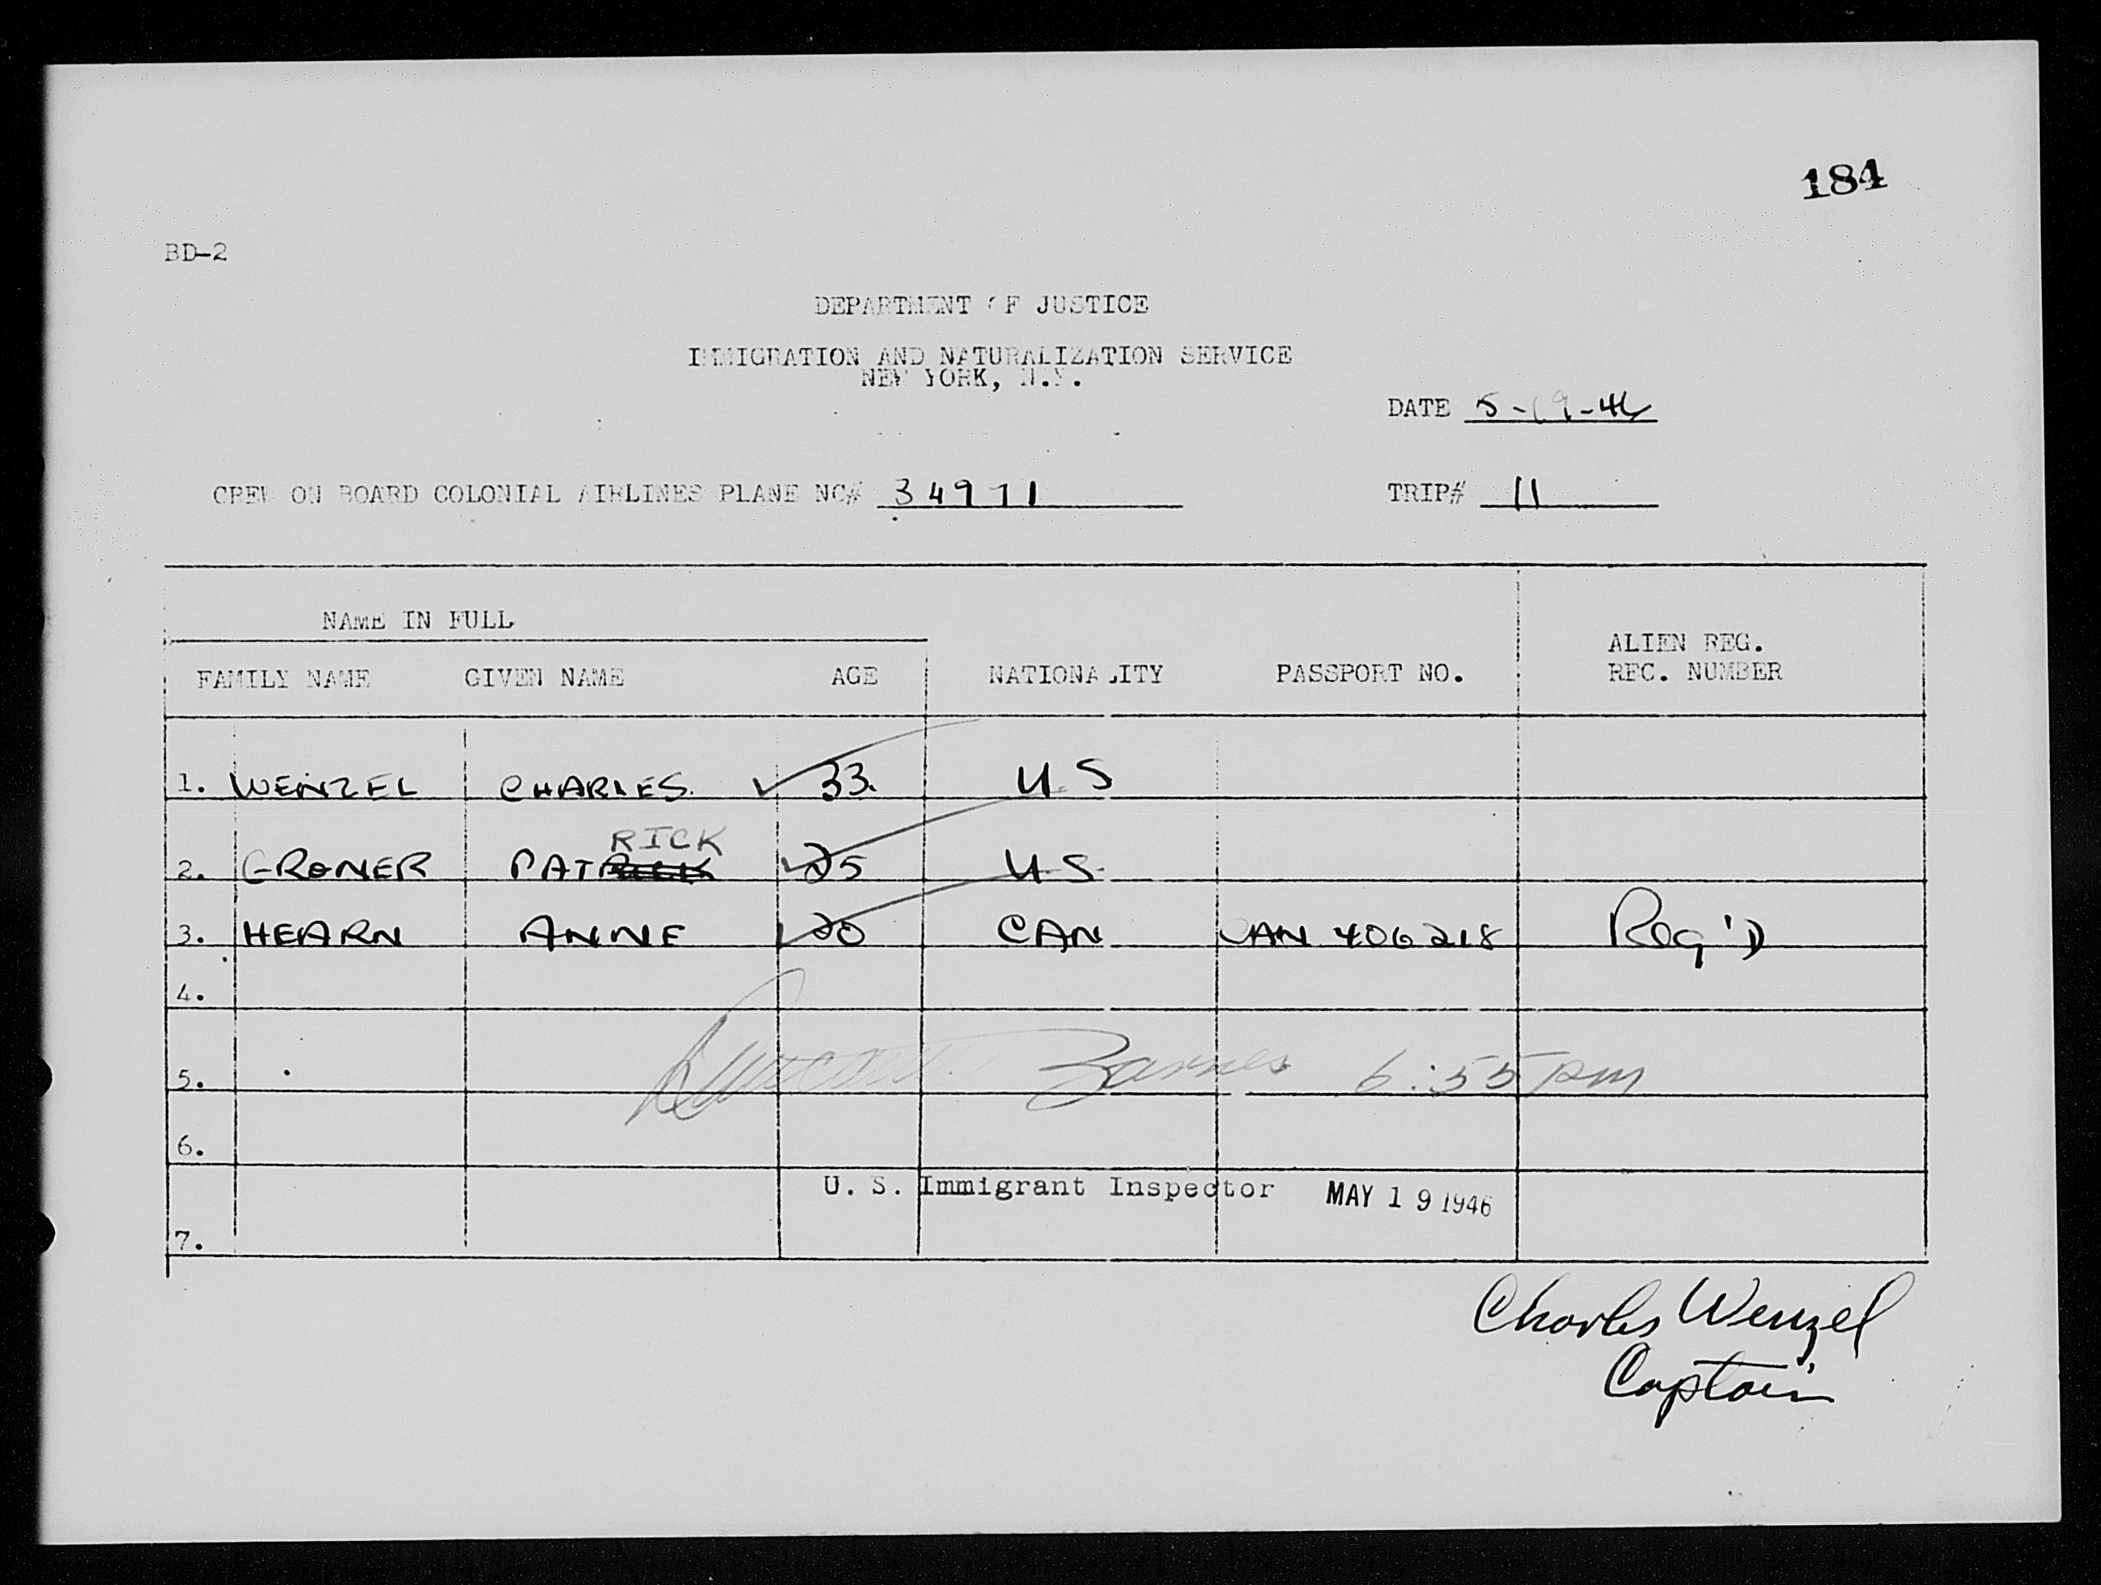 184
BD-2
DEPARTMENT OF JUSTICE
IMMIGRATION AND NATURALIZATION SERVICE
NEW YORK, N.Y.
DATE 5-19-46
CREW ON BOARD COLONIAL AIRLINES PLANE NC# 34971
TRIP# 11
NAME IN FULL
FAMILY NAME GIVEN NAME AGE NATIONALITY PASSPORT NO. ALIEN REG. REC. NUMBER
1. WENZEL CHARLES 33. U.S
RICK
2. GRONER PAT 25 U.S.
3. HEARN ANNE 20 CAN CAN 406218 Reg'D
4.
5. Barnes 6:55 pm
6.
U. S. Immigrant Inspector MAY 19 1946
7.
Charles Wenzel
Captain